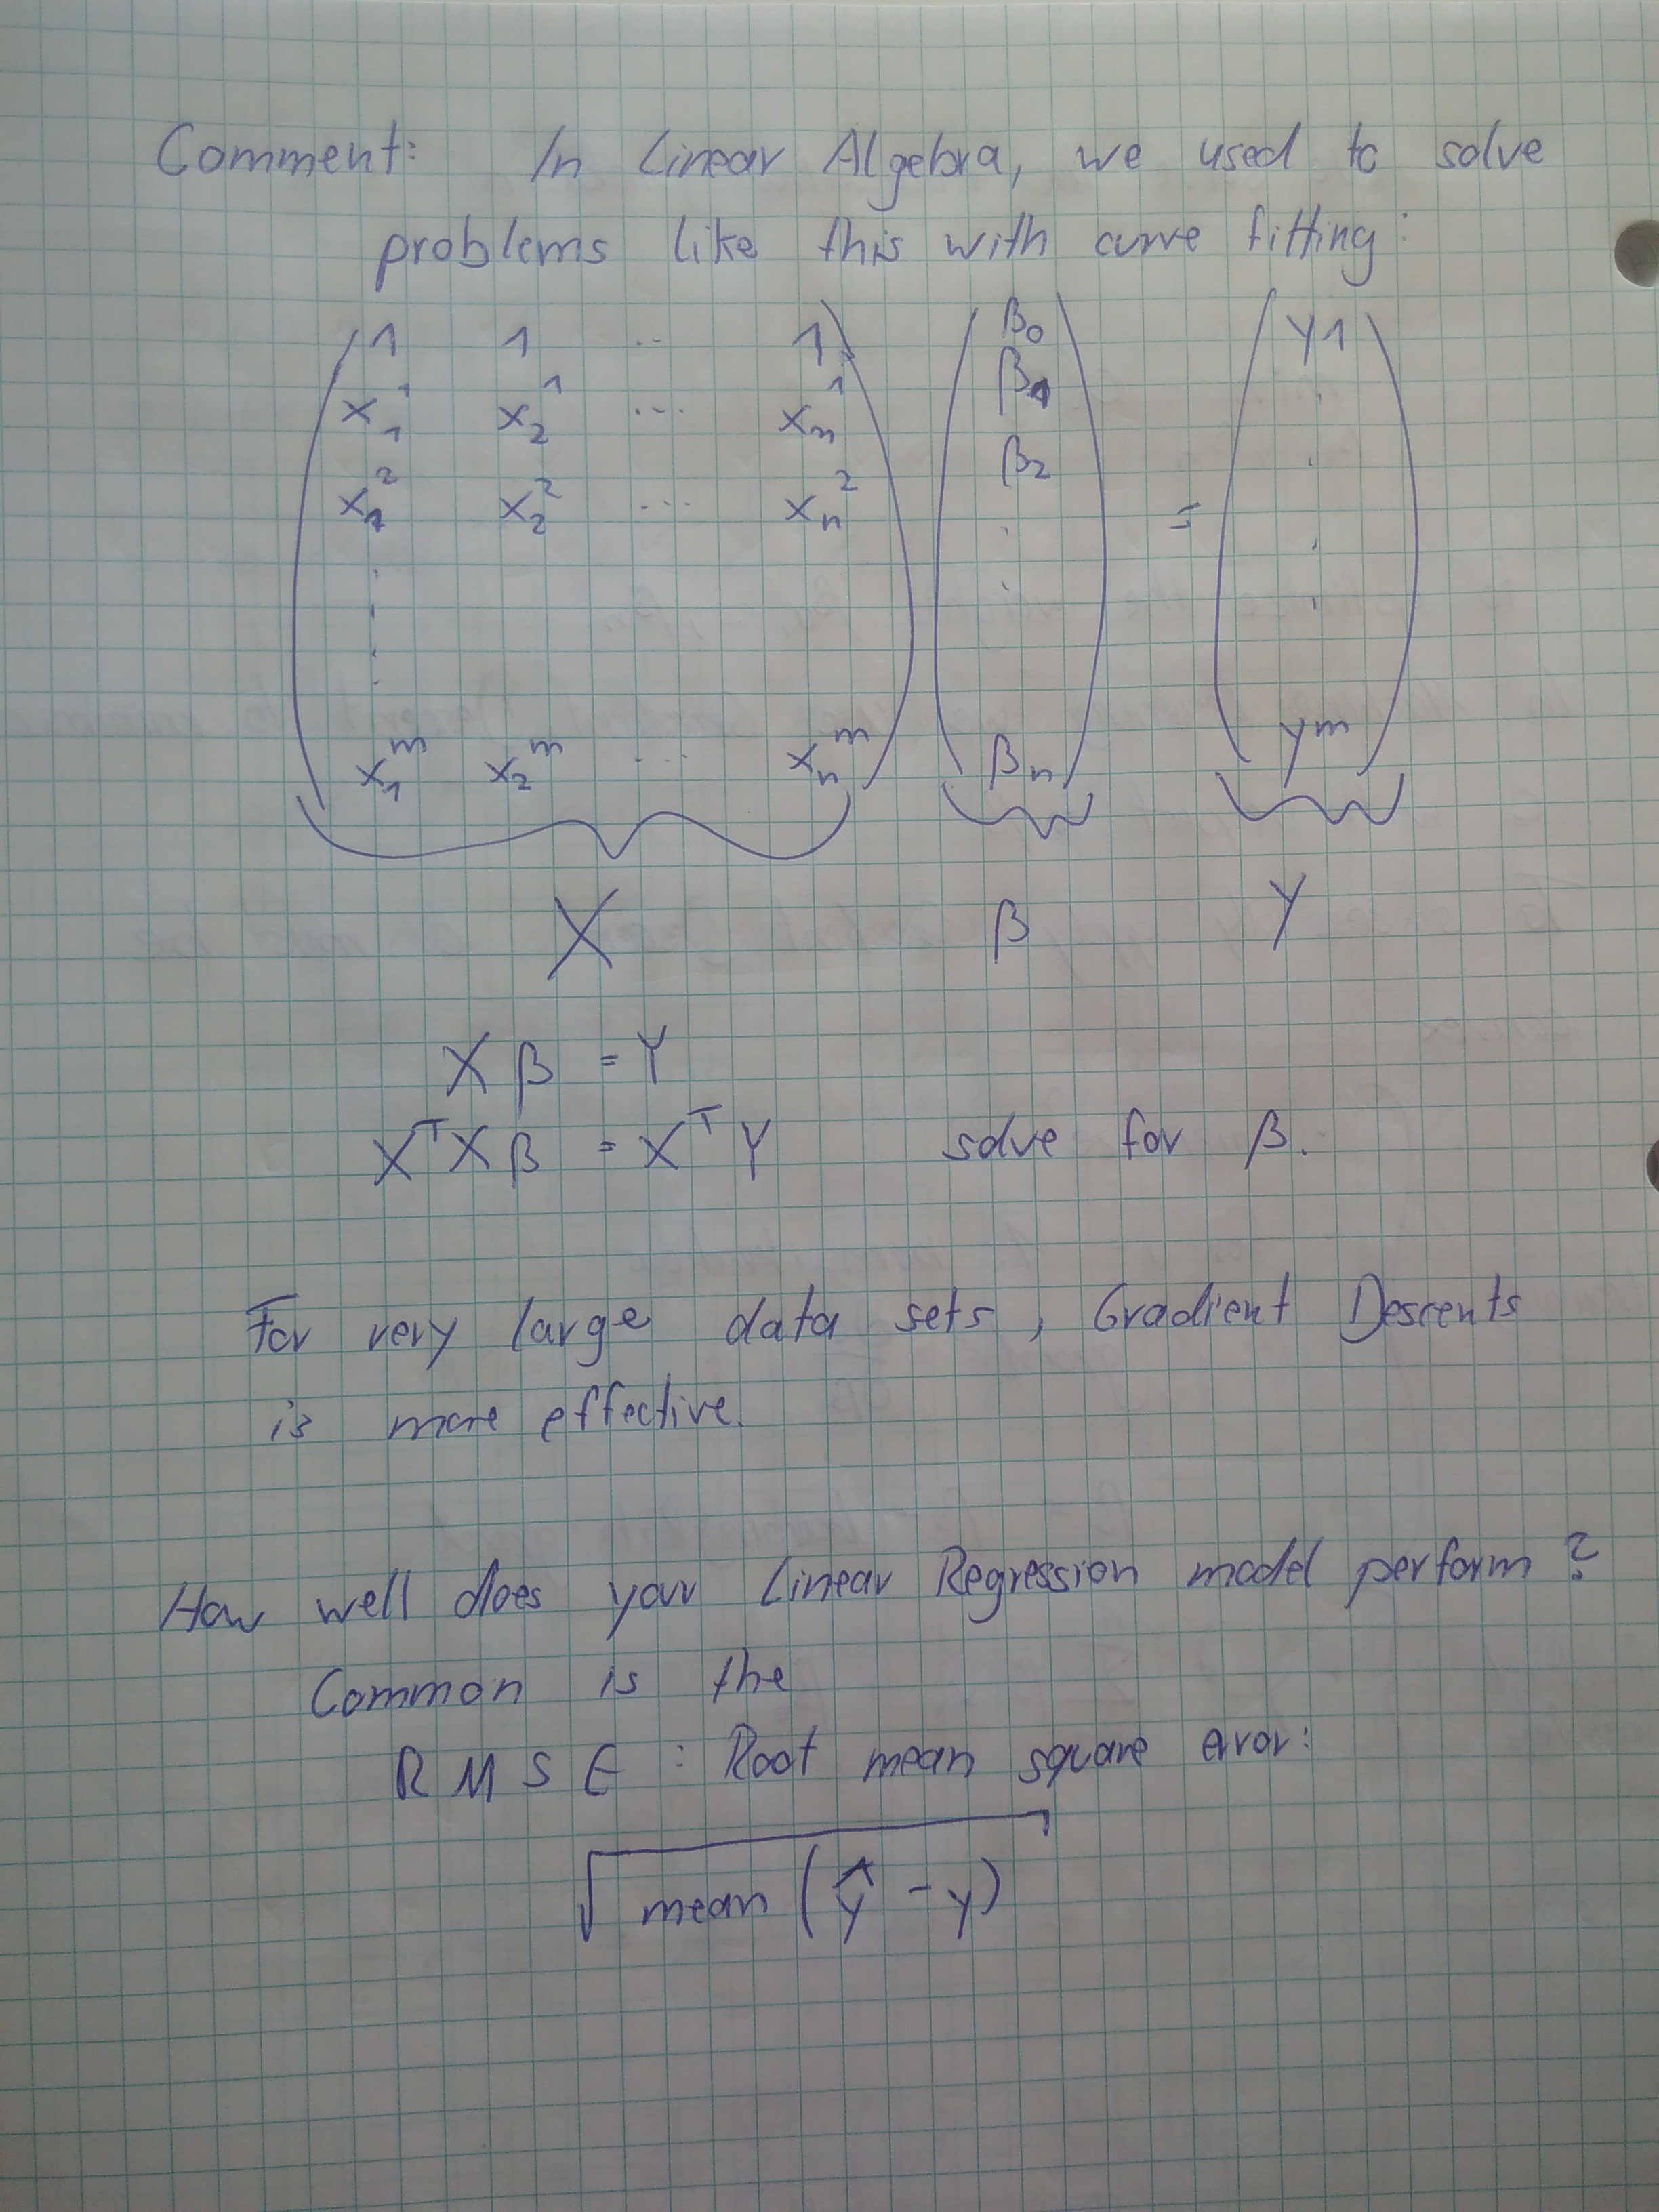 Comment: In Linear Algebra, we used to solve
problems like this with curve fitting:
( 1 1 ... 1 ) ( β₀ ) ( y1 )
x₁¹ x₂¹ ... xₙ¹ β₁
x₁² x₂² ... xₙ² β₂ =
x₁ᵐ x₂ᵐ ... xₙᵐ βₙ yᵐ
X β Y
Xβ = Y
XᵀXβ = XᵀY solve for β.
For very large data sets, Gradient Descents
is more effective.
How well does your Linear Regression model perform?
Common is the
RMSE : Root mean square error:
√mean(ŷ - y)